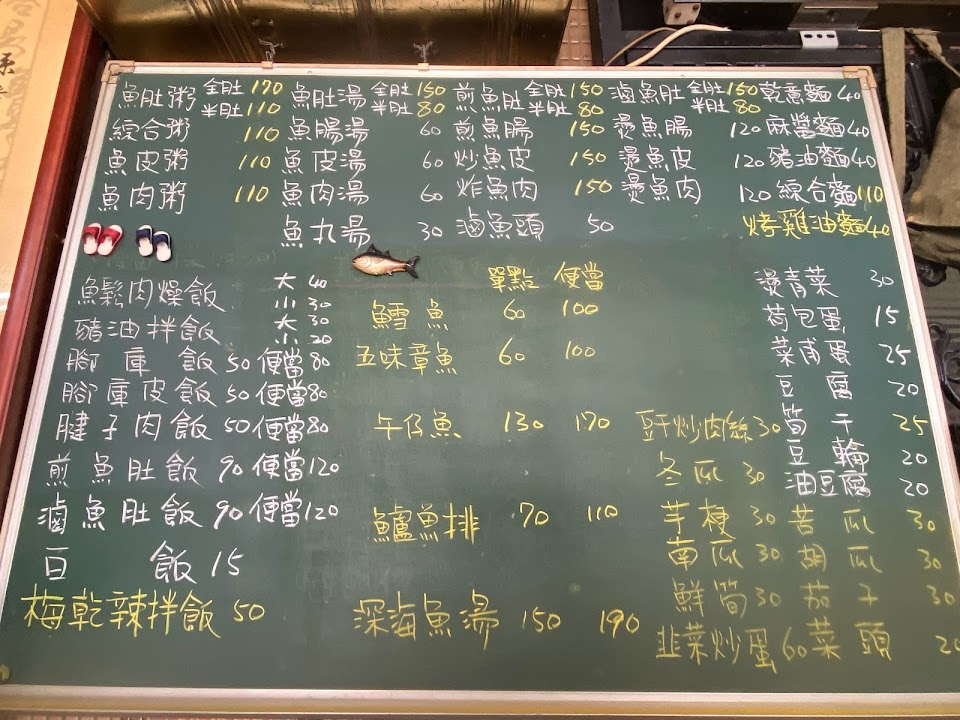 魚肚粥 全肚 170 半肚 110 魚肚湯 全肚 150 半肚 80 煎魚肚 全肚 150 半肚 80 滷魚肚 全肚 150 半肚 80 乾意麵 40
綜合粥 110 魚腸湯 60 煎魚腸 150 燙魚腸 120 麻醬麵 40
魚皮粥 110 魚皮湯 60 炒魚皮 150 燙魚皮 120 豬油麵 40
魚肉粥 110 魚肉湯 60 炸魚肉 150 燙魚肉 120 綜合麵 110
魚丸湯 30 滷魚頭 50 烤雞油麵 40
單點 便當
魚鬆肉燥飯 大 40 小 30
豬油拌飯 大 30 小 20
腳庫飯 50 便當 80
腳庫皮飯 50 便當 80
腱子肉飯 50 便當 80
煎魚肚飯 90 便當 120
滷魚肚飯 90 便當 120
白飯 15
梅乾辣拌飯 50
鱈魚 60 100
五味章魚 60 100
午仔魚 130 170
鱸魚排 70 110
深海魚湯 150 190
燙青菜 30
荷包蛋 15
菜甫蛋 25
豆腐 20
豆干炒肉絲 30 筍干 25
冬瓜 30 豆輪 20
油豆腐 20
芋梗 30 苦瓜 30
南瓜 30 胡瓜 30
鮮筍 30 茄子 30
韭菜炒蛋 60 菜頭 20